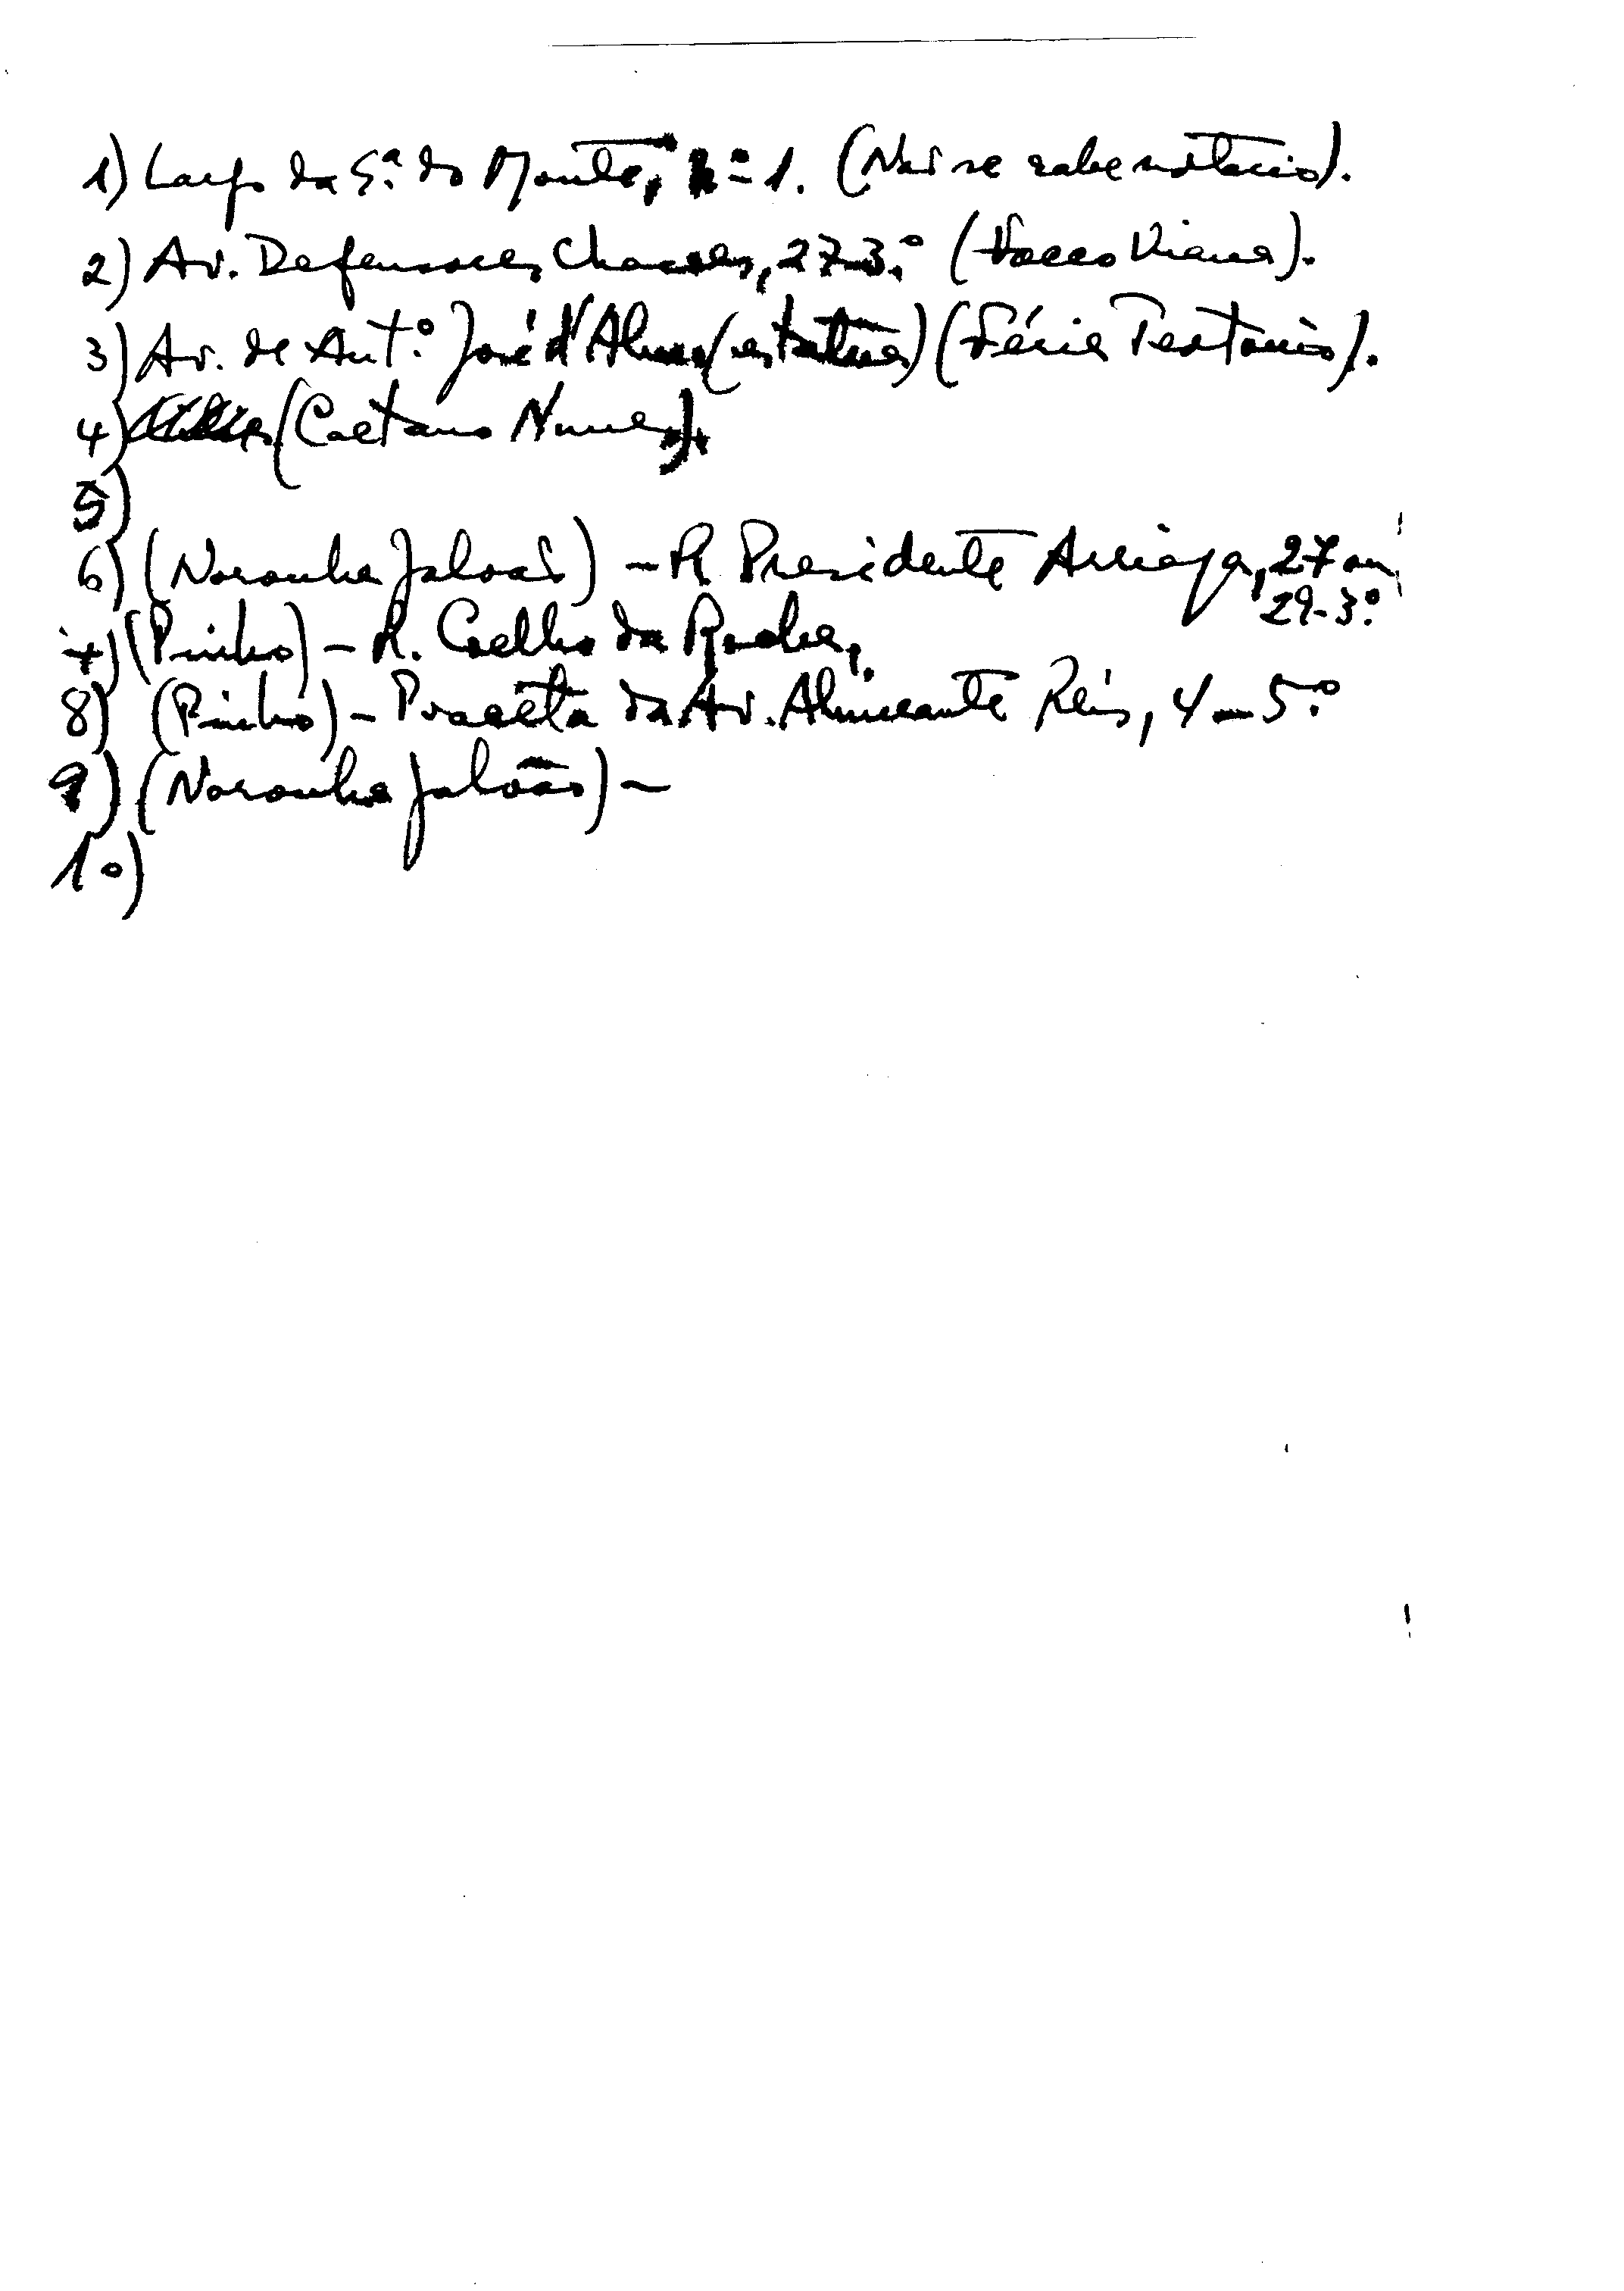 1) Largo da S.ª do Monte, nº 1. (Não se sabe notário).
2) Av. Defensores Chaves, 27-3.º (Vasco Viana).
3) Av. de Ant.º José d'Alm (estátua) (Tertônio).
4) (Caetano Nunes).
5)
6) (Noronha Galvão) – R. Presidente Arriaga, 27 ou
29-3.º
7) (Pinho) – R. Coelho da Rocha,
8) (Pinho) – Praceta da Av. Almirante Reis, 4 – 5.º
9) (Noronha Galvão) –
10)